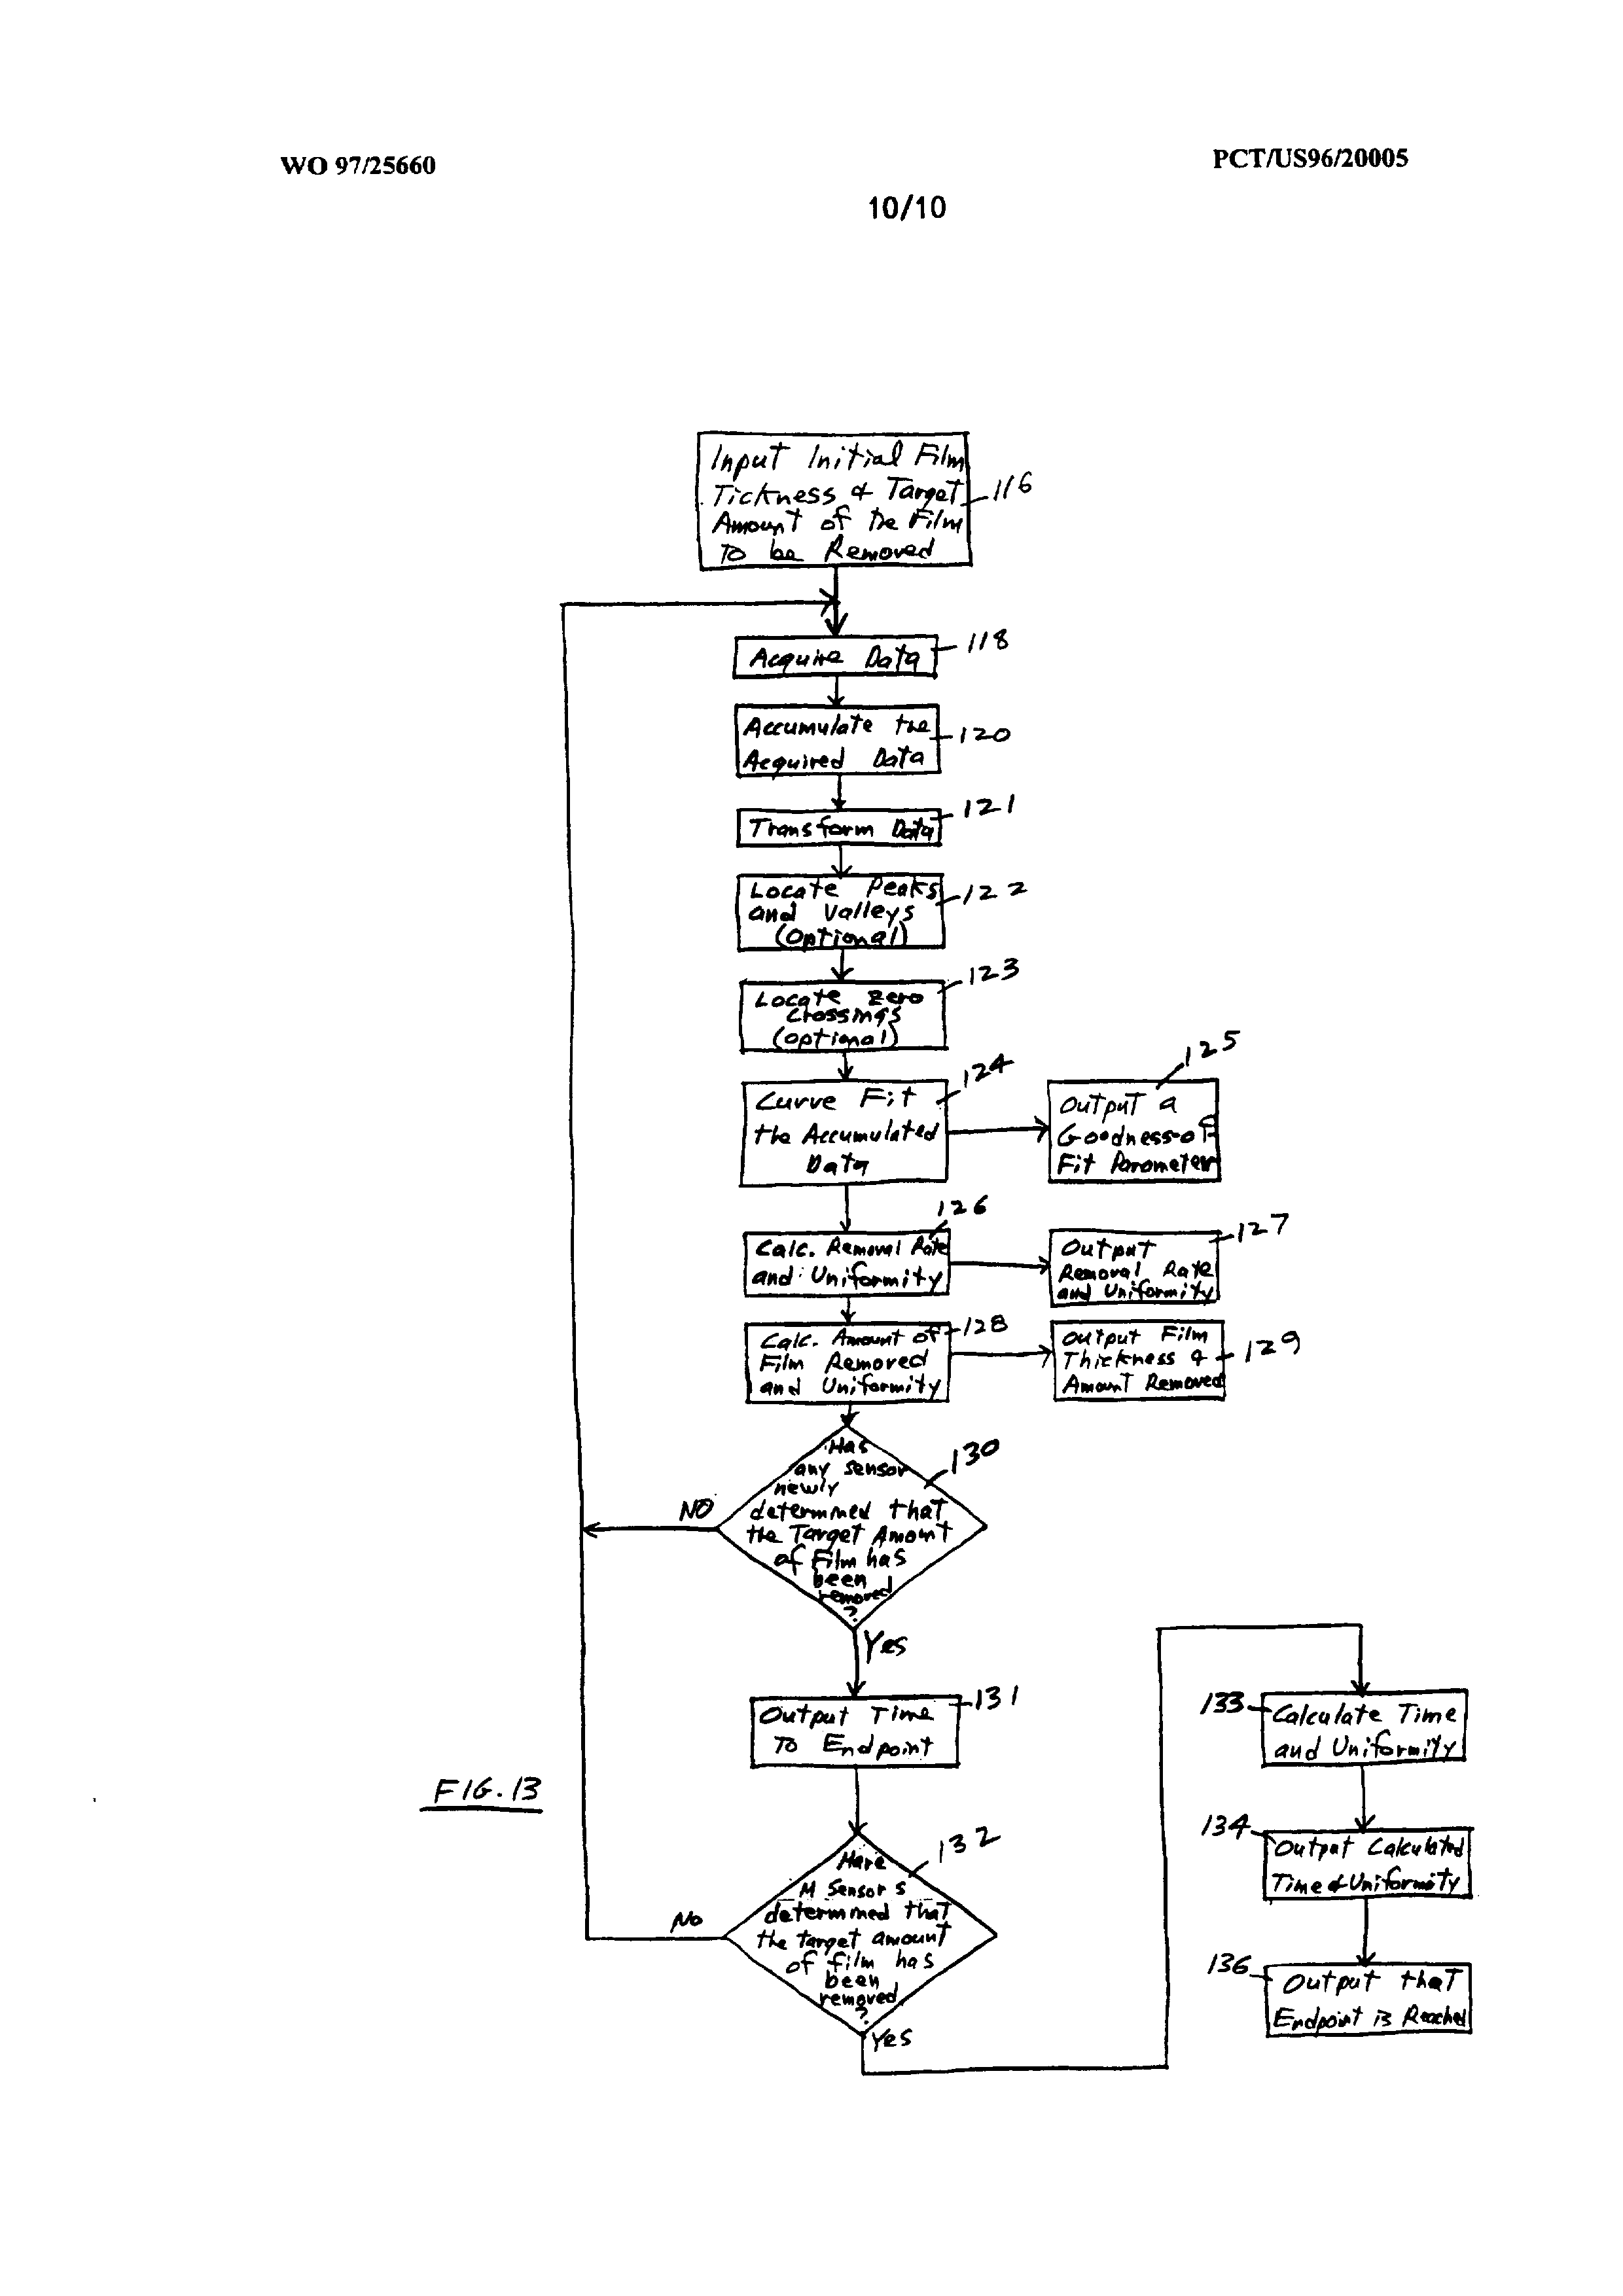 WO 97/25660
PCT/US96/20005
10/10
Input Initial Film
Tickness & Target
Amount of the Film
To be Removed
116
Acquire Data
118
Accumulate the
Acquired Data
120
Transform Data
121
Locate Peaks
and Valleys
(Optional)
122
Locate Zero
Crossings
(optional)
123
Curve Fit
the Accumulated
Data
124
Output a
Goodness-of-
Fit Parameter
125
Calc. Removal Rate
and Uniformity
126
Output
Removal Rate
and Uniformity
127
Calc. Amount of
Film Removed
and Uniformity
128
Output Film
Thickness &
Amount Removed
129
Has
any sensor
newly
determined that
the Target Amount
of Film has
been
removed
?
130
NO
Yes
Output Time
To Endpoint
131
Have
M Sensors
determined that
the target amount
of film has
been
removed
?
132
No
Yes
133
Calculate Time
and Uniformity
134
Output Calculated
Time & Uniformity
136
Output that
Endpoint is Reached
FIG. 13